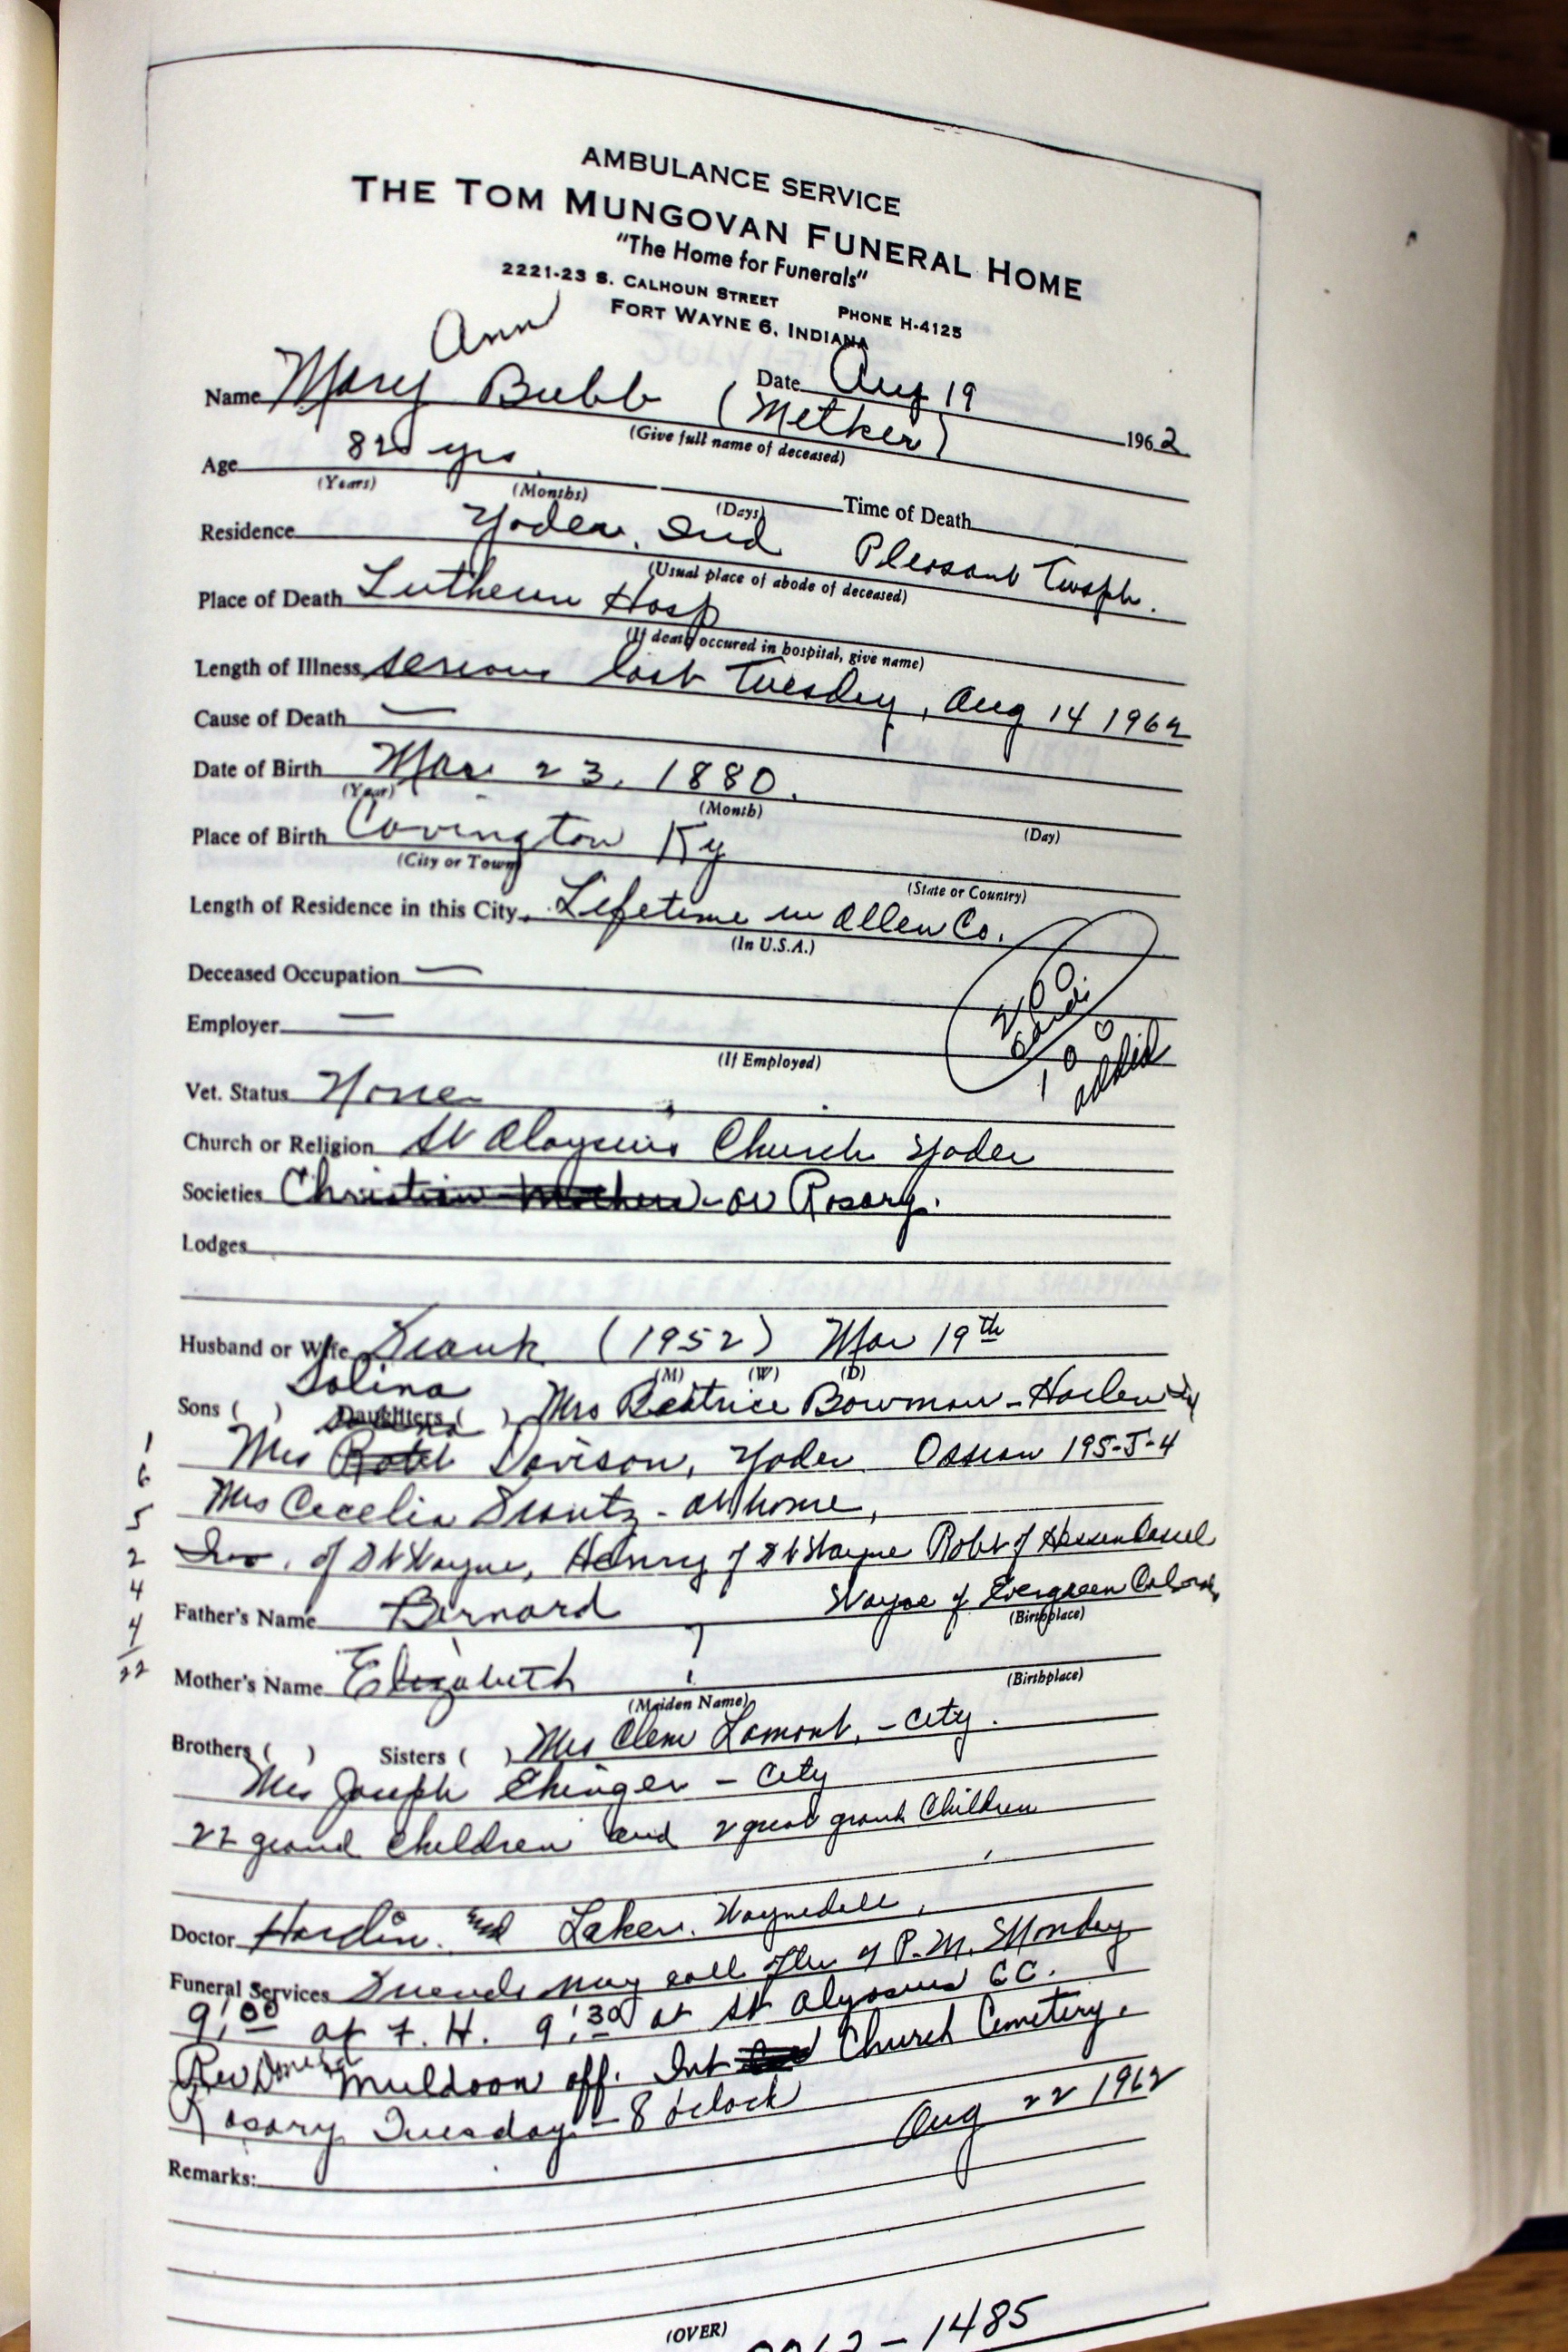 AMBULANCE SERVICE
THE TOM MUNGOVAN FUNERAL HOME
"The Home for Funerals"
2221-23 S. CALHOUN STREET PHONE H-4125
FORT WAYNE 6, INDIANA
Ann
Date Aug 19 1962
Name Mary Bubb (Metker)
(Give full name of deceased)
Age 82 yrs. Time of Death
(Years) (Months) (Days)
Residence Yoder, Ind Pleasant Twsph.
(Usual place of abode of deceased)
Place of Death Lutheran Hosp
(If death occured in hospital, give name)
Length of Illness serious last Tuesday, Aug 14 1962
Cause of Death —
Date of Birth Mar 23, 1880.
(Year) (Month) (Day)
Place of Birth Covington Ky
(City or Town) (State or Country)
Length of Residence in this City. Lifetime in Allen Co.
(In U.S.A.)
200
cards
100
addid
Deceased Occupation —
Employer —
(If Employed)
Vet. Status None
Church or Religion St Aloysius Church Yoder
Societies Christian Mothers - or Rosary.
Lodges
Husband or Wife Frank (1952) Mar 19th
(M) (W) (D)
Solina
Sons ( ) Daughters ( ) Mrs Beatrice Bowman - Harlan Ind
Mrs Davison, Yoder Ossian 195-J-4
Mrs Cecelia - at home,
of Ft Wayne, Henry of Ft Wayne Robt of Hessen Cassel
Wayne of Evergreen Colorado
1
6
5
2
4
4
22
Father's Name Bernard
(Birthplace)
Mother's Name Elizabeth ?
(Maiden Name) (Birthplace)
Brothers ( ) Sisters ( ) Mrs Clem Lamont, - City.
Mrs Joseph Ehinger - City
22 grand children and 2 great grand Children
Doctor Hardin. and Laker. Waynedale,
Funeral Services Friends may call after 4 P.M. Monday
9:00 at F. H. 9:30 at St Alyosius CC.
Rev Muldoon off. Int Church Cemetery.
Rosary Tuesday - 8 o'clock
Aug 22 1962
Remarks:
(OVER)
- 1485